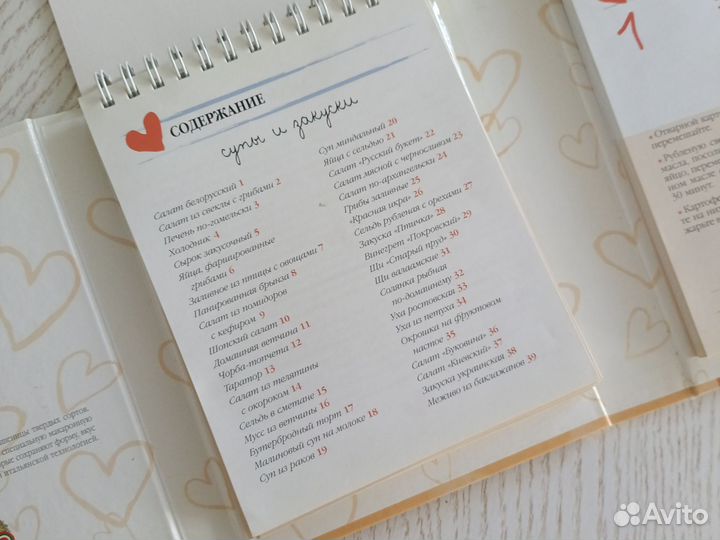 СОДЕРЖАНИЕ
супы и закуски
Салат белорусский 1
Салат из свеклы с грибами 2
Печень по-гомельски 3
Холодник 4
Сырок закусочный 5
Яйца, фаршированные
грибами 6
Заливное из птицы с овощами 7
Панированная брынза 8
Салат из помидоров
с кефиром 9
Шопский салат 10
Домашняя ветчина 11
Чорба-топчета 12
Таратор 13
Салат из телятины
с окороком 14
Сельдь в сметане 15
Мусс из ветчины 16
Бутербродный торт 17
Малиновый суп на молоке 18
Суп из раков 19
Суп миндальный 20
Яйца с сельдью 21
Салат «Русский букет» 22
Салат мясной с черносливом 23
Салат по-архангельски 24
Грибы заливные 25
«Красная икра» 26
Сельдь рубленая с орехами 27
Закуска «Птичка» 28
Винегрет «Покровский» 29
Щи «Старый пруд» 30
Щи валаамские 31
Солянка рыбная
по-домашнему 32
Уха ростовская 33
Уха из петуха 34
Окрошка на фруктовом
настое 35
Салат «Буковина» 36
Салат «Киевский» 37
Закуска украинская 38
Меживо из баклажанов 39
1
Отварной
перемешайте.
Рубленую
масла,
яйцо,
ном масле
30 минут.
те на
жарьте
пшеницы твердых сортов.
специальную макаронную
сохраняют форму, вкус
итальянской технологией.
Avito